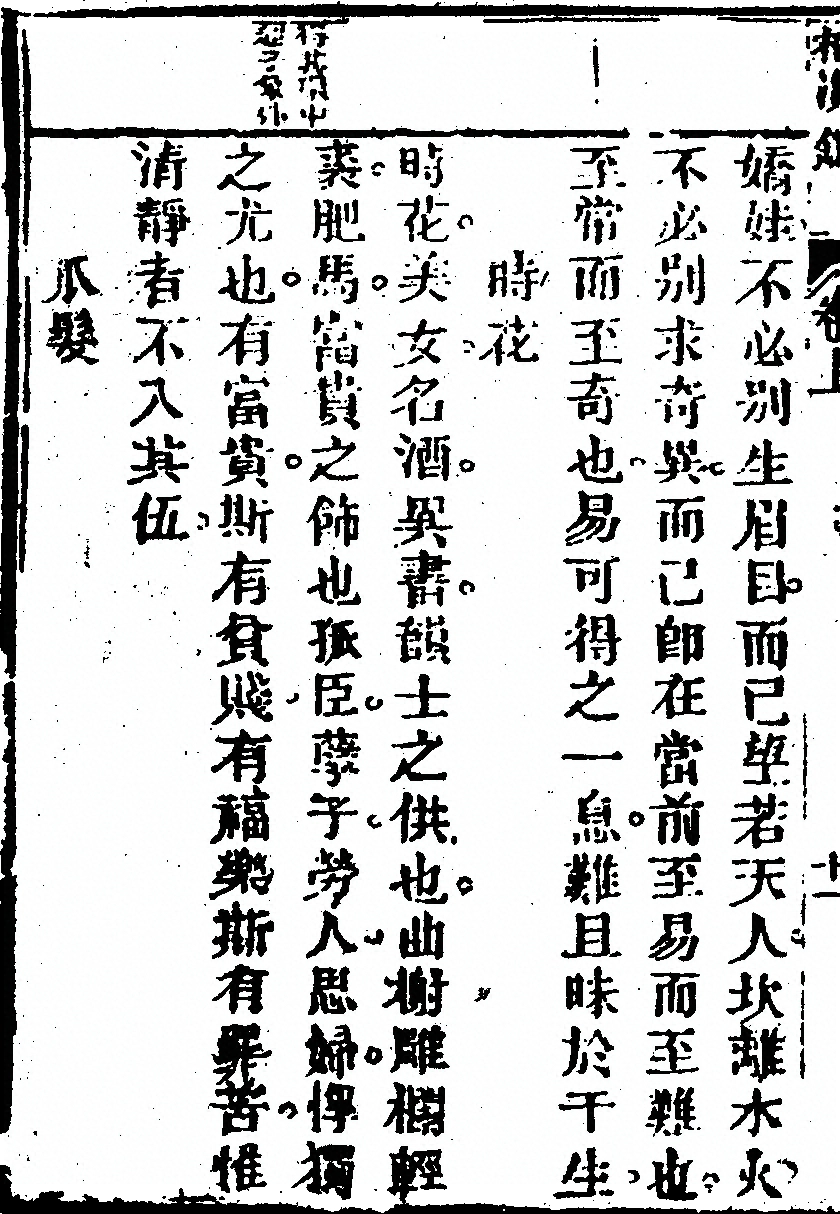 嬌娃不必别生眉目而已望若天人坎離水火
不必别求奇異而已卽在當前至易而至難也
至常而至奇也易可得之一息難且昧於千生
時花
時花美女名酒異書韻士之供也曲榭雕欄輕
裘肥馬富貴之飾也孤臣孽子勞人思婦惸獨
之尤也有富貴斯有貧賤有福樂斯有罪苦惟
清靜者不入其伍
爪髮
卷上
十一